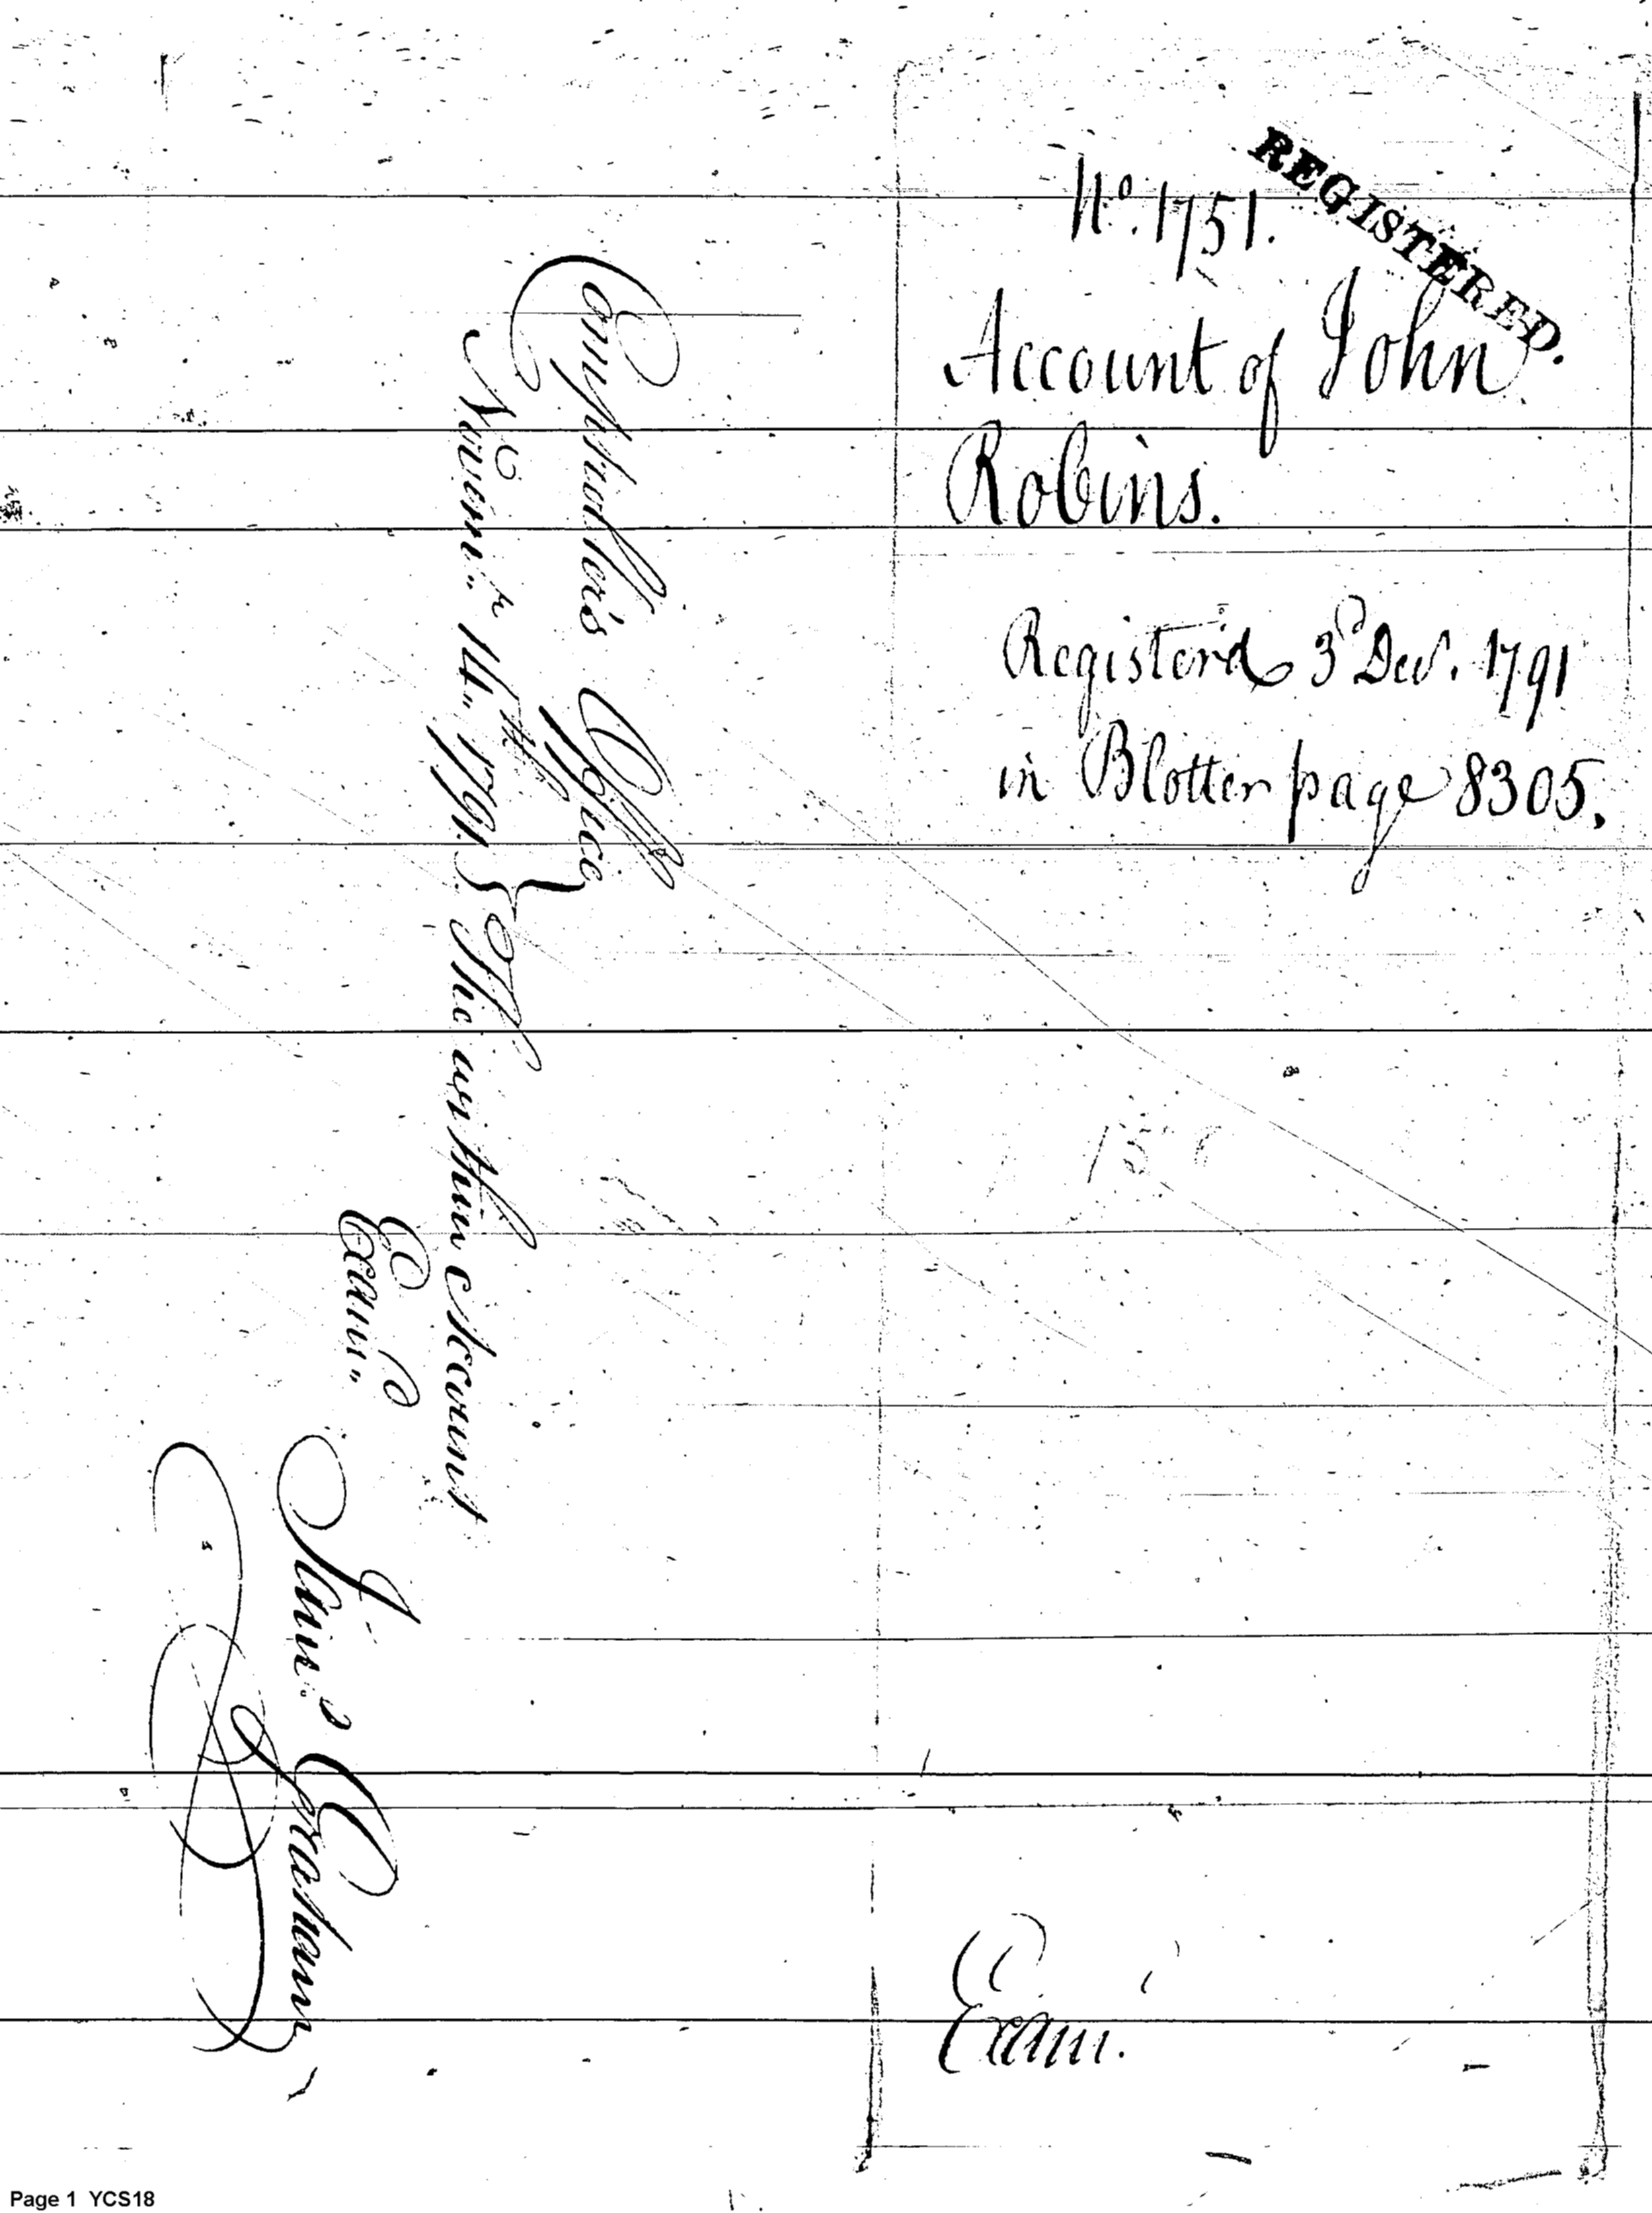 REGISTERED.
No. 1751.
Account of John
Robins.
Registerd 3d Decr. 1791
in Blotter page 8305.
Exam.
Comptroller's Office
Novem.r 14.th 1791. } The within Account
Exam.d
Graham
Page 1 YCS18